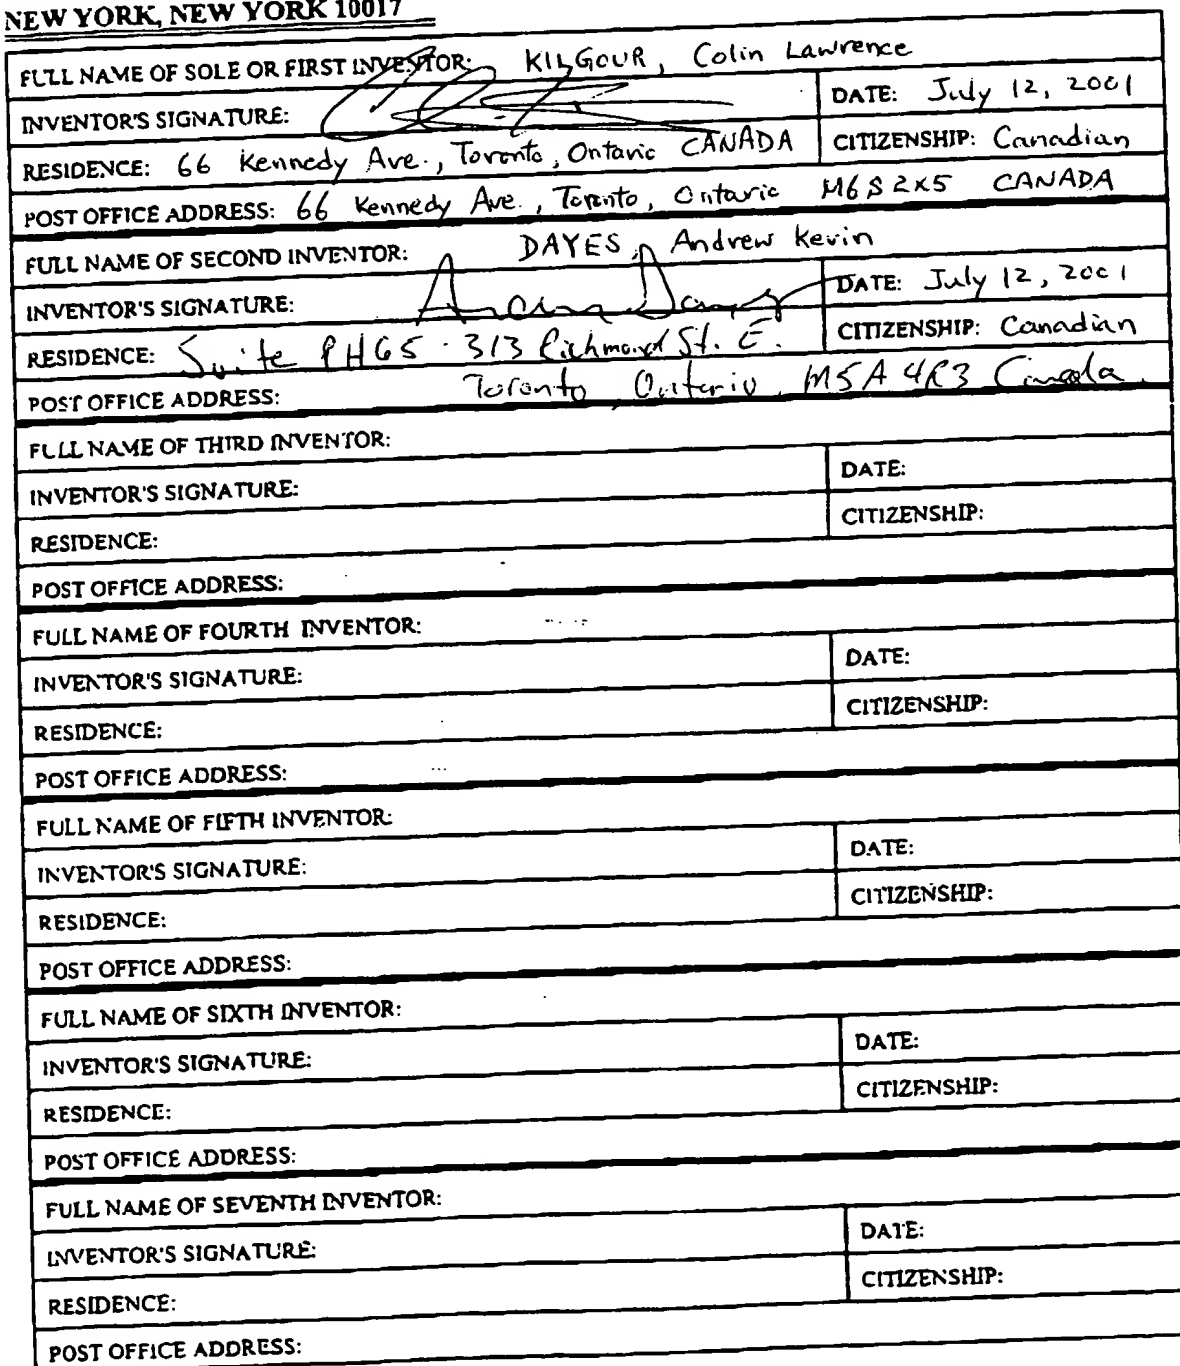 NEW YORK, NEW YORK 10017
FULL NAME OF SOLE OR FIRST INVENTOR: KILGOUR, Colin Lawrence
INVENTOR'S SIGNATURE: DATE: July 12, 2001
RESIDENCE: 66 Kennedy Ave., Toronto, Ontario CANADA CITIZENSHIP: Canadian
POST OFFICE ADDRESS: 66 Kennedy Ave., Toronto, Ontario M6S 2X5 CANADA
FULL NAME OF SECOND INVENTOR: DAYES, Andrew Kevin
INVENTOR'S SIGNATURE: DATE: July 12, 2001
RESIDENCE: Suite PH65 - 313 Richmond St. E. CITIZENSHIP: Canadian
POST OFFICE ADDRESS: Toronto, Ontario, M5A 4R3 Canada.
FULL NAME OF THIRD INVENTOR:
INVENTOR'S SIGNATURE: DATE:
RESIDENCE: CITIZENSHIP:
POST OFFICE ADDRESS:
FULL NAME OF FOURTH INVENTOR:
INVENTOR'S SIGNATURE: DATE:
RESIDENCE: CITIZENSHIP:
POST OFFICE ADDRESS:
FULL NAME OF FIFTH INVENTOR:
INVENTOR'S SIGNATURE: DATE:
RESIDENCE: CITIZENSHIP:
POST OFFICE ADDRESS:
FULL NAME OF SIXTH INVENTOR:
INVENTOR'S SIGNATURE: DATE:
RESIDENCE: CITIZENSHIP:
POST OFFICE ADDRESS:
FULL NAME OF SEVENTH INVENTOR:
INVENTOR'S SIGNATURE: DATE:
RESIDENCE: CITIZENSHIP:
POST OFFICE ADDRESS: